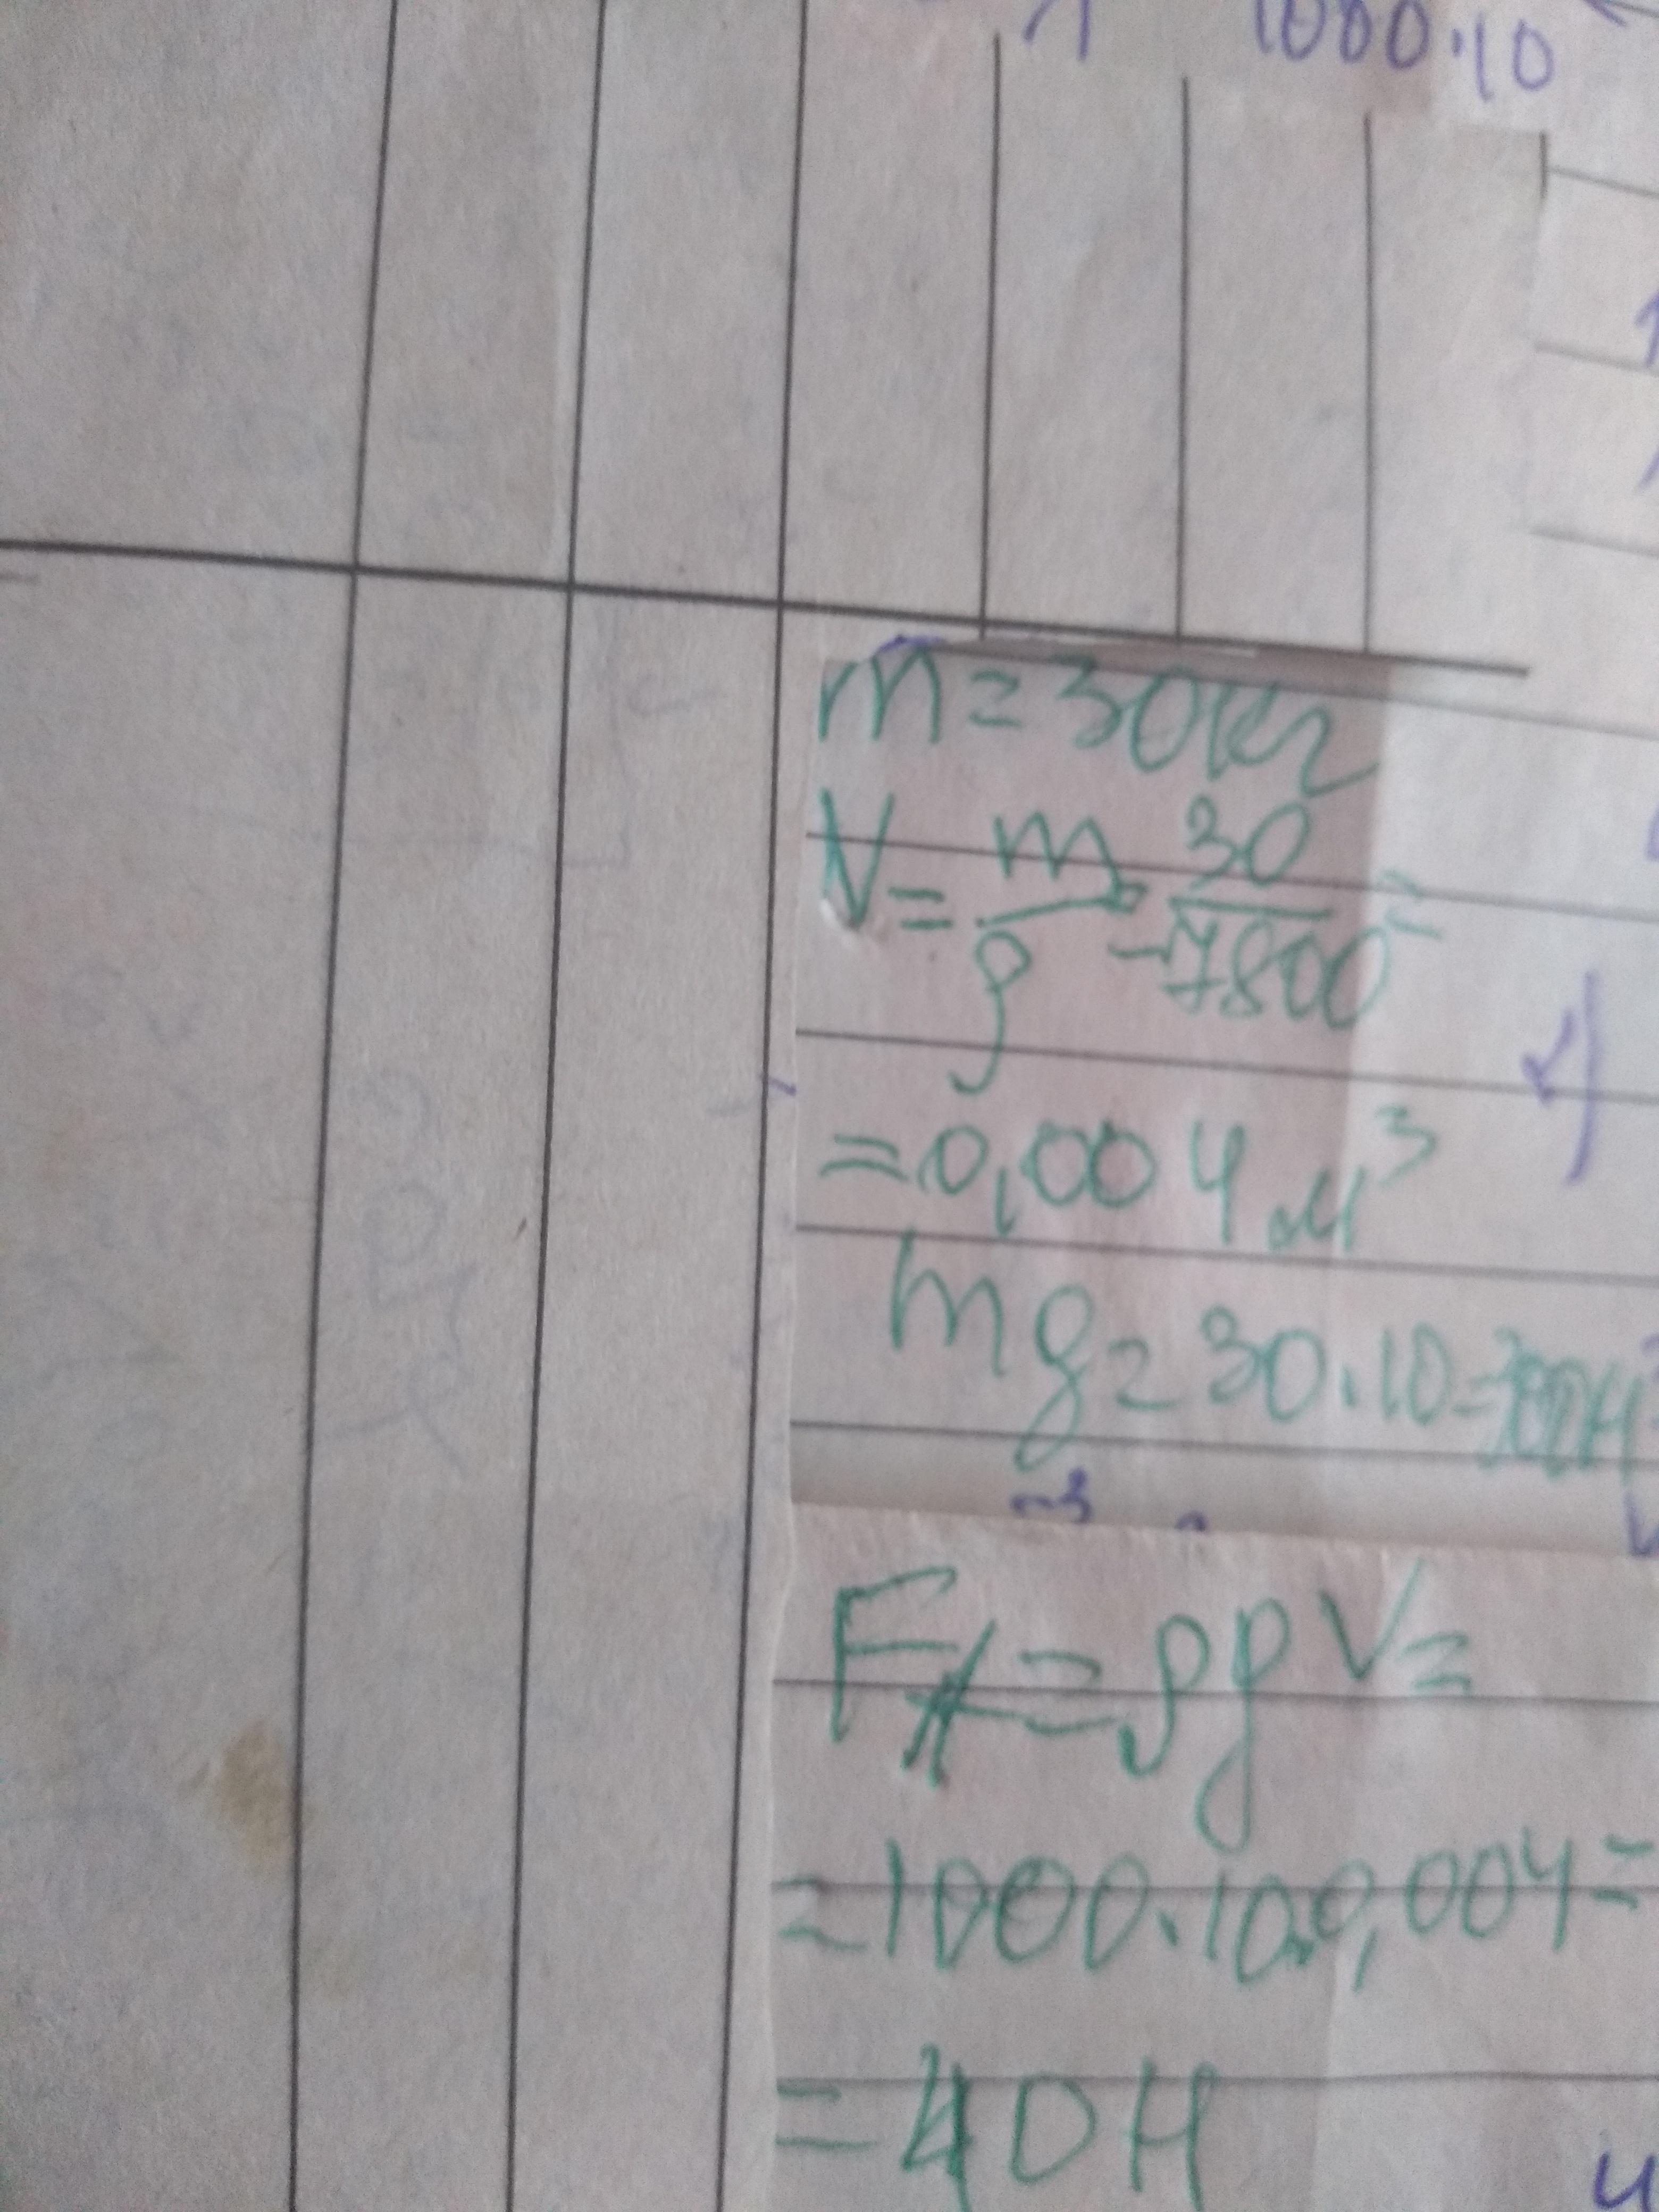 1000·10
m=30кг
V=m/ρ=30/7800=
=0,004м³
mg=30·10=300Н
F_A=ρgV=
=1000·10·0,004=
=40Н